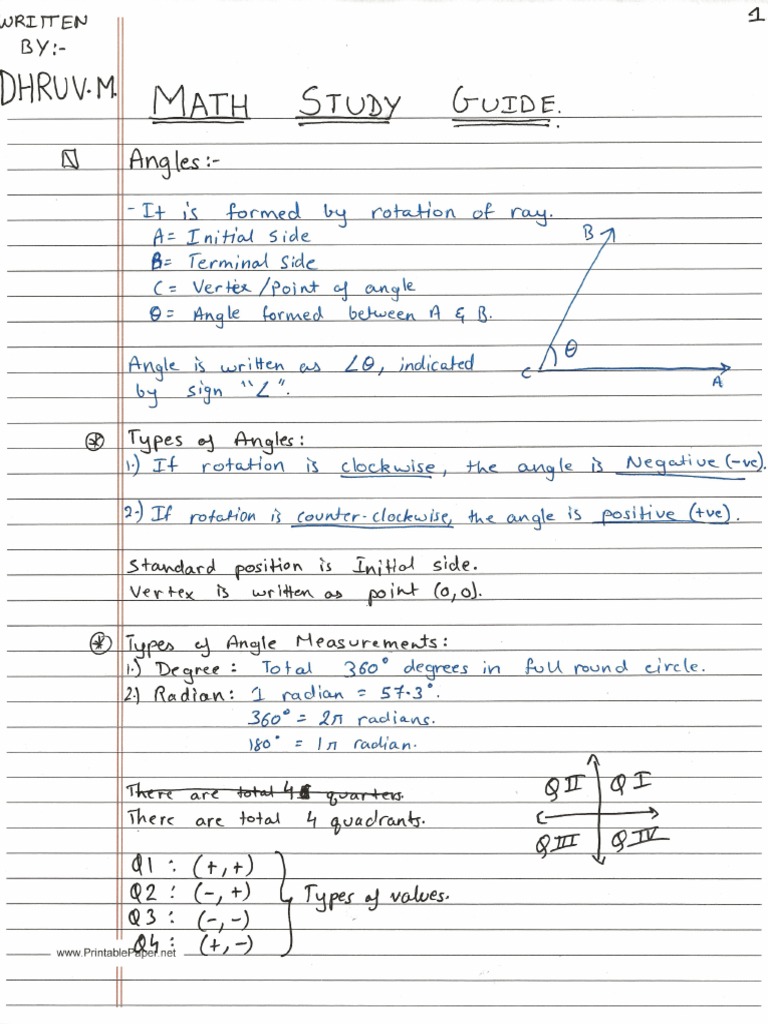 WRITTEN
BY:-
DHRUV.M.
1
MATH STUDY GUIDE.
Angles:-
- It is formed by rotation of ray.
A= Initial side
B= Terminal side
C= Vertex/Point of angle
θ= Angle formed between A & B.
B
θ
C
A
Angle is written as ∠θ, indicated
by sign "∠".
Types of Angles:
1.) If rotation is clockwise, the angle is Negative (-ve).
2.) If rotation is counter-clockwise, the angle is positive (+ve).
Standard position is Initial side.
Vertex is written as point (0,0).
Types of Angle Measurements:
1.) Degree: Total 360° degrees in full round circle.
2.) Radian: 1 radian = 57.3°.
360° = 2π radians.
180° = 1π radian.
There are total 4 quarters.
There are total 4 quadrants.
Q II Q I
Q III Q IV
Q1 : (+,+)
Q2 : (-,+)
Q3 : (-,-)
Q4 : (+,-)
Types of values.
www.PrintablePaper.net